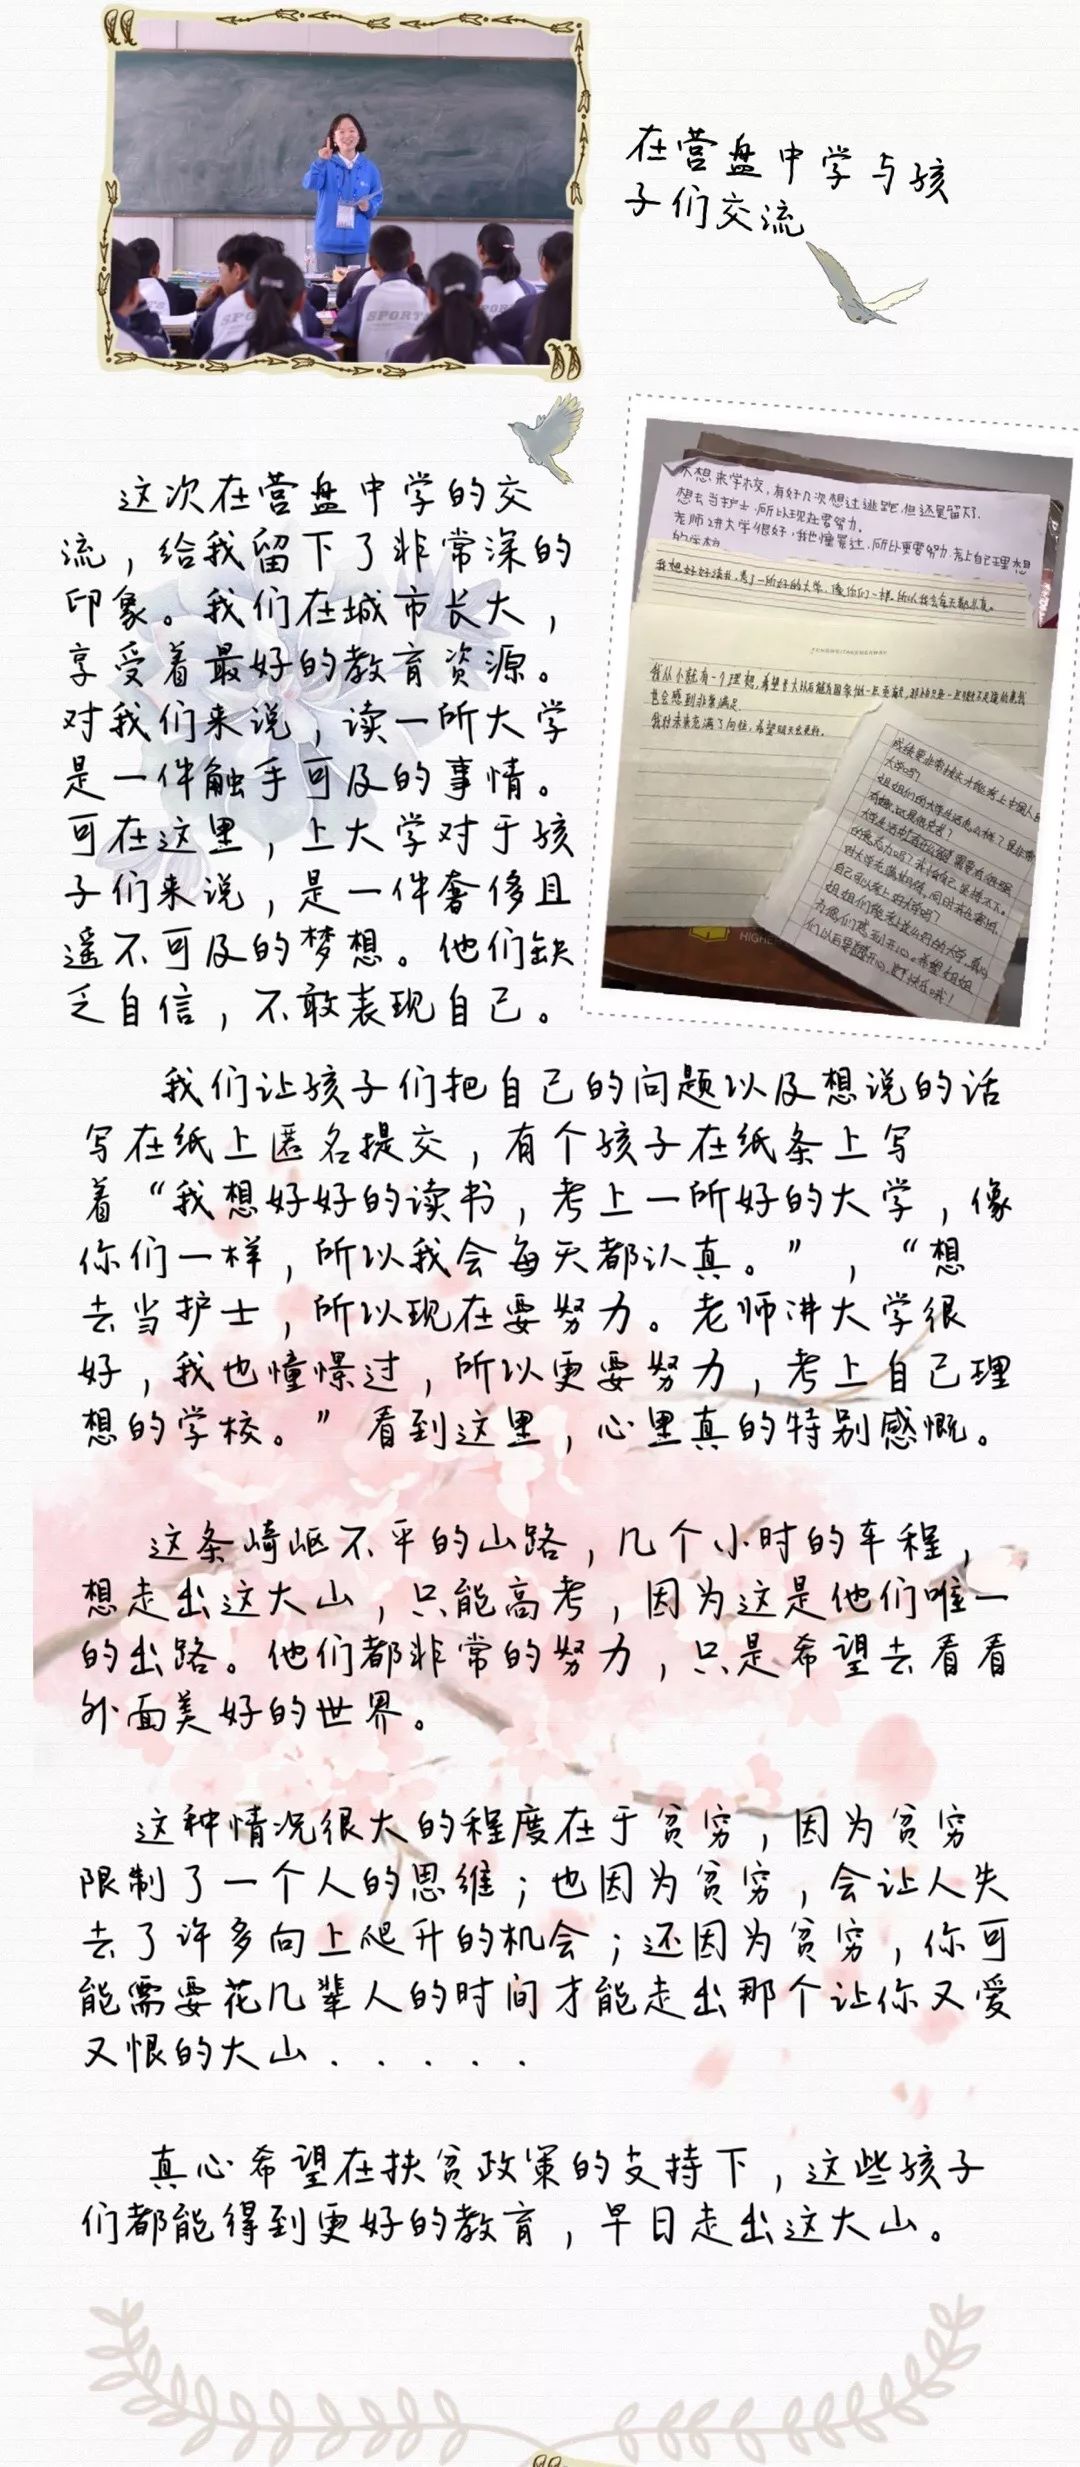 在营盘中学与孩
子们交流
SPORTS
不想来学校，有好几次想过逃跑，但还是留下了.
想去当护士，所以现在要努力.
老师讲大学很好，我也憧景过，所以更要努力，考上自己理想
的学校.
我想好好读书，考上一所好的大学，像你们一样，所以我会每天都认真。
我从小就有一个理想，希望长大以后能为国家做一点贡献，那怕只是一点
也会感到非常满足.
我对未来充满了向往，希望明天会更好.
成绩要非常拔尖才能考上中国人民
大学吗？
姐姐们的大学生活怎么样？是非常
有趣，还是很充实？
对大学充满期待，同时我在害怕，
自己可以考上好大学吗？
姐姐们能考上这么好的大学，我
为他们感到开心，希望姐姐
们以后要开心，要快乐哦！
HIGHE
这次在营盘中学的交
流，给我留下了非常深的
印象。我们在城市长大，
享受着最好的教育资源。
对我们来说，读一所大学
是一件触手可及的事情。
可在这里，上大学对于孩
子们来说，是一件奢侈且
遥不可及的梦想。他们缺
乏自信，不敢表现自己。
我们让孩子们把自己的问题以及想说的话
写在纸上匿名提交，有个孩子在纸条上写
着“我想好好的读书，考上一所好的大学，像
你们一样，所以我会每天都认真。”，“想
去当护士，所以现在要努力。老师讲大学很
好，我也憧憬过，所以更要努力，考上自己理
想的学校。”看到这里，心里真的特别感慨。
这条崎岖不平的山路，几个小时的车程，
想走出这大山，只能高考，因为这是他们唯一
的出路。他们都非常的努力，只是希望去看看
外面美好的世界。
这种情况很大的程度在于贫穷，因为贫穷
限制了一个人的思维；也因为贫穷，会让人失
去了许多向上爬升的机会；还因为贫穷，你可
能需要花几辈人的时间才能走出那个让你又爱
又恨的大山......
真心希望在扶贫政策的支持下，这些孩子
们都能得到更好的教育，早日走出这大山。